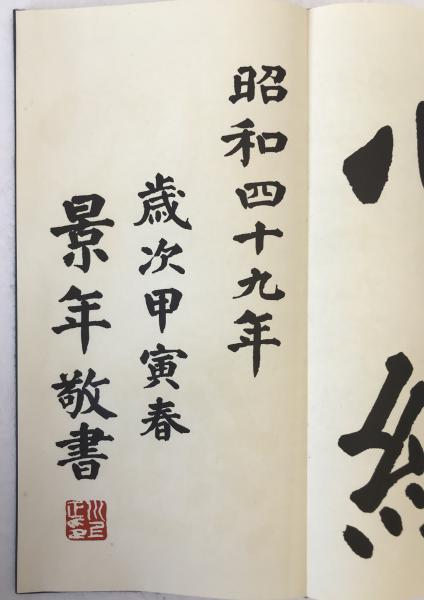 昭和四十九年
歳次甲寅春
景年敬書